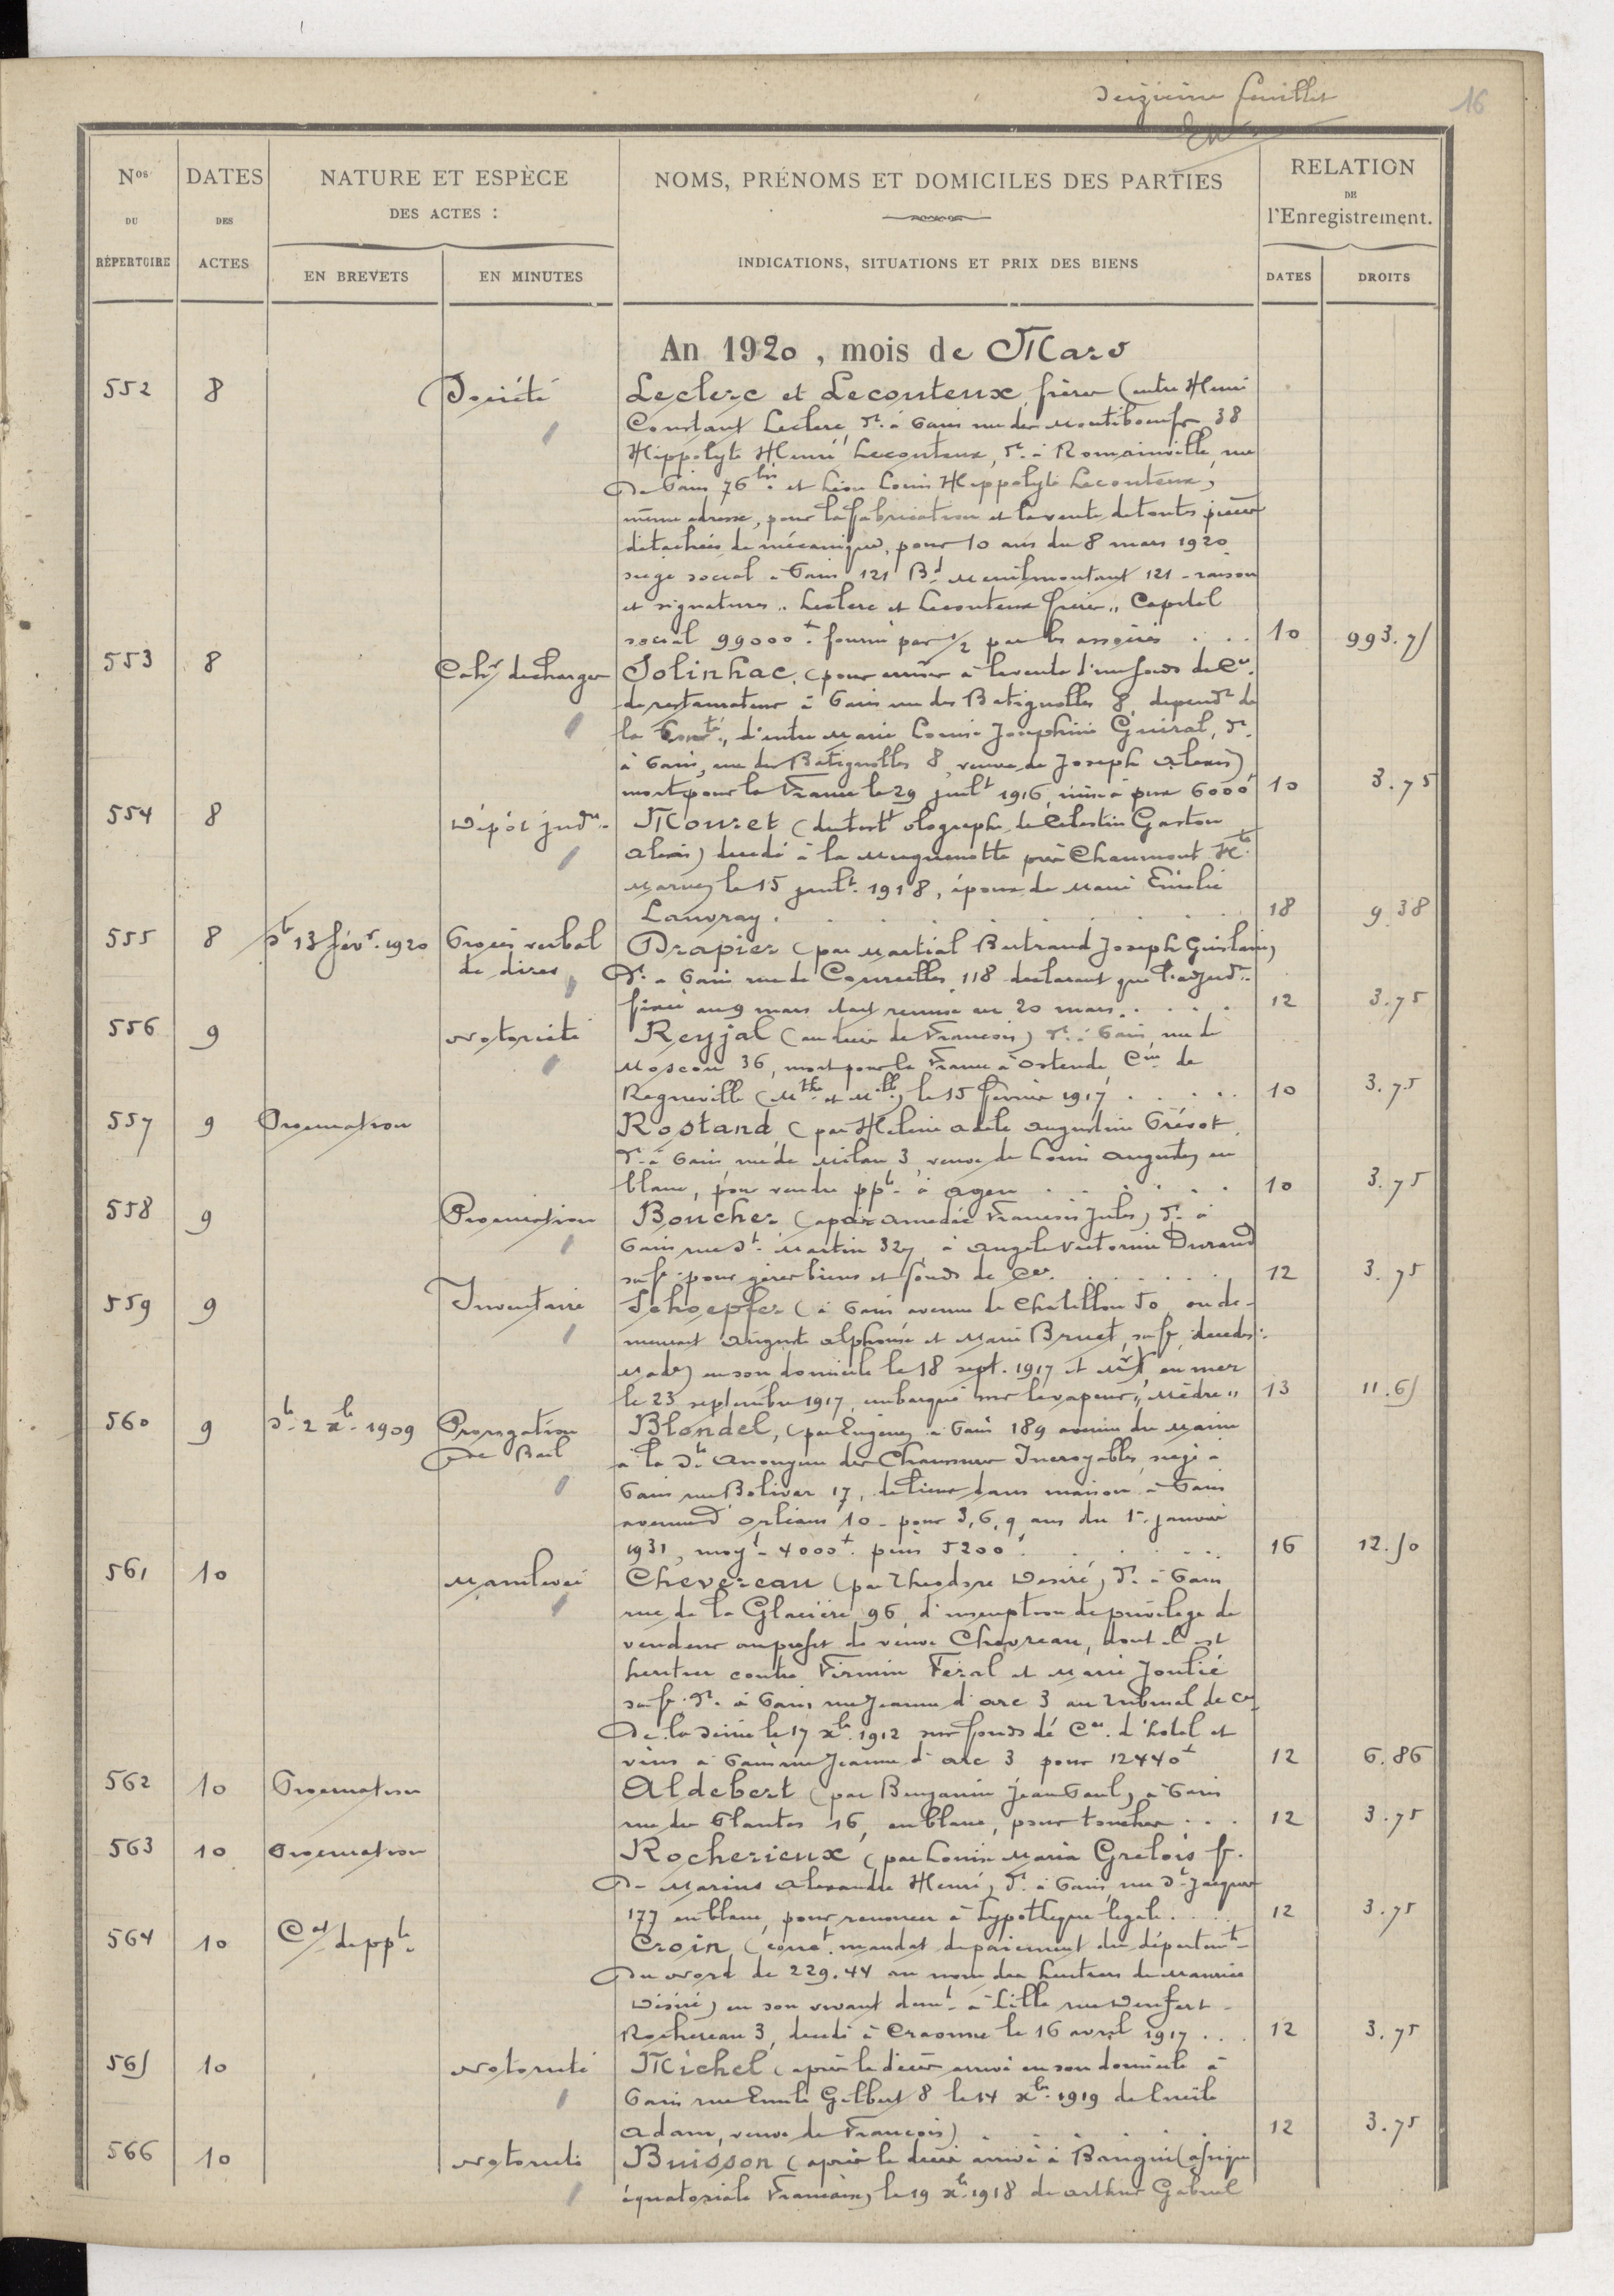 Seizième feuillet
16
Nos DU RÉPERTOIRE
DATES DES ACTES
NATURE ET ESPÈCE DES ACTES :
EN BREVETS
EN MINUTES
NOMS, PRÉNOMS ET DOMICILES DES PARTIES
INDICATIONS, SITUATIONS ET PRIX DES BIENS
RELATION DE l'Enregistrement.
DATES
DROITS
An 1920, mois de Mars
552 8 Société Leclerc et Lecouteux frères (entre Henri
Constant Leclerc, dt à Paris rue des Montiboeufs 38
Hippolyte Henri Lecouteux, dt à Romainville, rue
de Paris 76 bis et Léon Louis Hippolyte Lecouteux,
même adresse, pour la fabrication et la vente de toutes pièces
détachées de mécanique, pour 10 ans du 8 mars 1920
siège social à Paris 121 Bd Menilmontant 121 - raison
et signatures "Leclerc et Lecouteux frères" Capital
social 99000 f. fourni par 1/2 par les associés . . . 10 993.75
553 8 Cahr de charges Solinhac, (pour arriver à la vente d'un fonds de Cce
de restaurateur à Paris rue des Batignolles 8, dépendt de
la Conté, d'entre Marie Louise Joséphine Guiral, dt
à Paris, rue des Batignolles 8, veuve de Joseph Alexis)
mort pour la France le 29 juillt 1916, mise à prix 6000 f 10 3.75
554 8 Dépôt judre Mouret (du testt olographe de Célestin Gaston
Alexis) décédé à la Muguenotte près Chaumont Hte
Marne) le 15 juillt 1918, époux de Marie Emélie
Lauvray. 18 9.38
555 8 St 13 févr. 1920 Procès verbal Drapier (par Martial Bertrand Joseph Guislain)
de dires dt à Paris rue de Courcelles 118 déclarant que l'adjudon
fixée au 9 mars était remise au 20 mars. . . . 12 3.75
556 9 Notoriété Reyjal (au décès de François) dt à Paris, rue de
Moscou 36, mort pour la France à Ostende Cne de
Regneville (Mthe et Mlle) le 15 février 1917 . . . . 10 3.75
557 9 Procuration Rostand, (par Hélène Adèle Augustine Prévot,
dt à Paris rue de Milan 3, veuve de Louis Auguste) en
blanc, pour vendre ppté à Agen . . . . . . 10 3.75
558 9 Procuration Boucher (par Amédée François Jules) dt à
Paris rue St Martin 327 à Angèle Victorine Durand
sa fe pour gérer biens et fonds de Cce . . . . . . 12 3.75
559 9 Inventaire Schoepfer (à Paris avenue de Chatillon 50 où de-
meuraient Auguste Alphonse et Marie Bruet, sa fe décédés:
Made) en son domicile le 18 sept. 1917 et Mr) en mer
le 23 septembre 1917, embarqué sur le vapeur "Mèdre" 13 11.65
560 9 St 2 xbre 1909 Prorogation Blondel, (par Eugène) à Paris 189 avenue du Maine
de Bail à la Sté Anonyme des Chaussures Incroyables, siège à
Paris rue Bolivar 17, de lieux dans maison à Paris
avenue d'Orléans 10 - pour 3, 6, 9 ans du 1er janvier
1931, moyt 4000 f. puis 5200 f. . . . 16 12.50
561 10 Mainlevée Chevereau (par Théodore Désiré) dt à Paris
rue de la Glacière 96, d'inscription de privilège de
vendeur au profit de veuve Chevreau, dont il est
héritier contre Firmin Féral et Marie Joulié
sa fe dt à Paris, rue Jeanne d'arc 3 au tribunal de Cce
de la Seine le 17 xbre 1912 sur fonds de Cce d'hôtel et
vins à Paris rue Jeanne d'arc 3 pour 12440 f 12 6.86
562 10 Procuration Aldebert (par Benjamin Jean Paul) à Paris
rue des Plantes 16, en blanc, pour toucher . . . 12 3.75
563 10 Procuration Rocherieux (par Louise Maria Grelois fe
de Marius Alexandre Henri) dt à Paris, rue St Jacques
177 en blanc, pour renoncer à hypothèque légale . . . 12 3.75
564 10 Cat de ppté Croin, (concnt mandat de paiement du départemt
du Nord de 229.44 au nom des héritiers de Maurice
Désiré) en son vivant demt à Lille rue Denfert-
Rochereau 3, décédé à Craonne le 16 avril 1917 . . . 12 3.75
565 10 Notoriété Michel (après le décès arrivé en son domicile à
Paris rue Emile Gilbert 8 le 14 xbre 1919 de Lucile
Adam, veuve de François) . . . 12 3.75
566 10 Notoriété Buisson (après le décès arrivé à Bangui (afrique
équatoriale Française) le 19 xbre 1918 de Arthur Gabriel